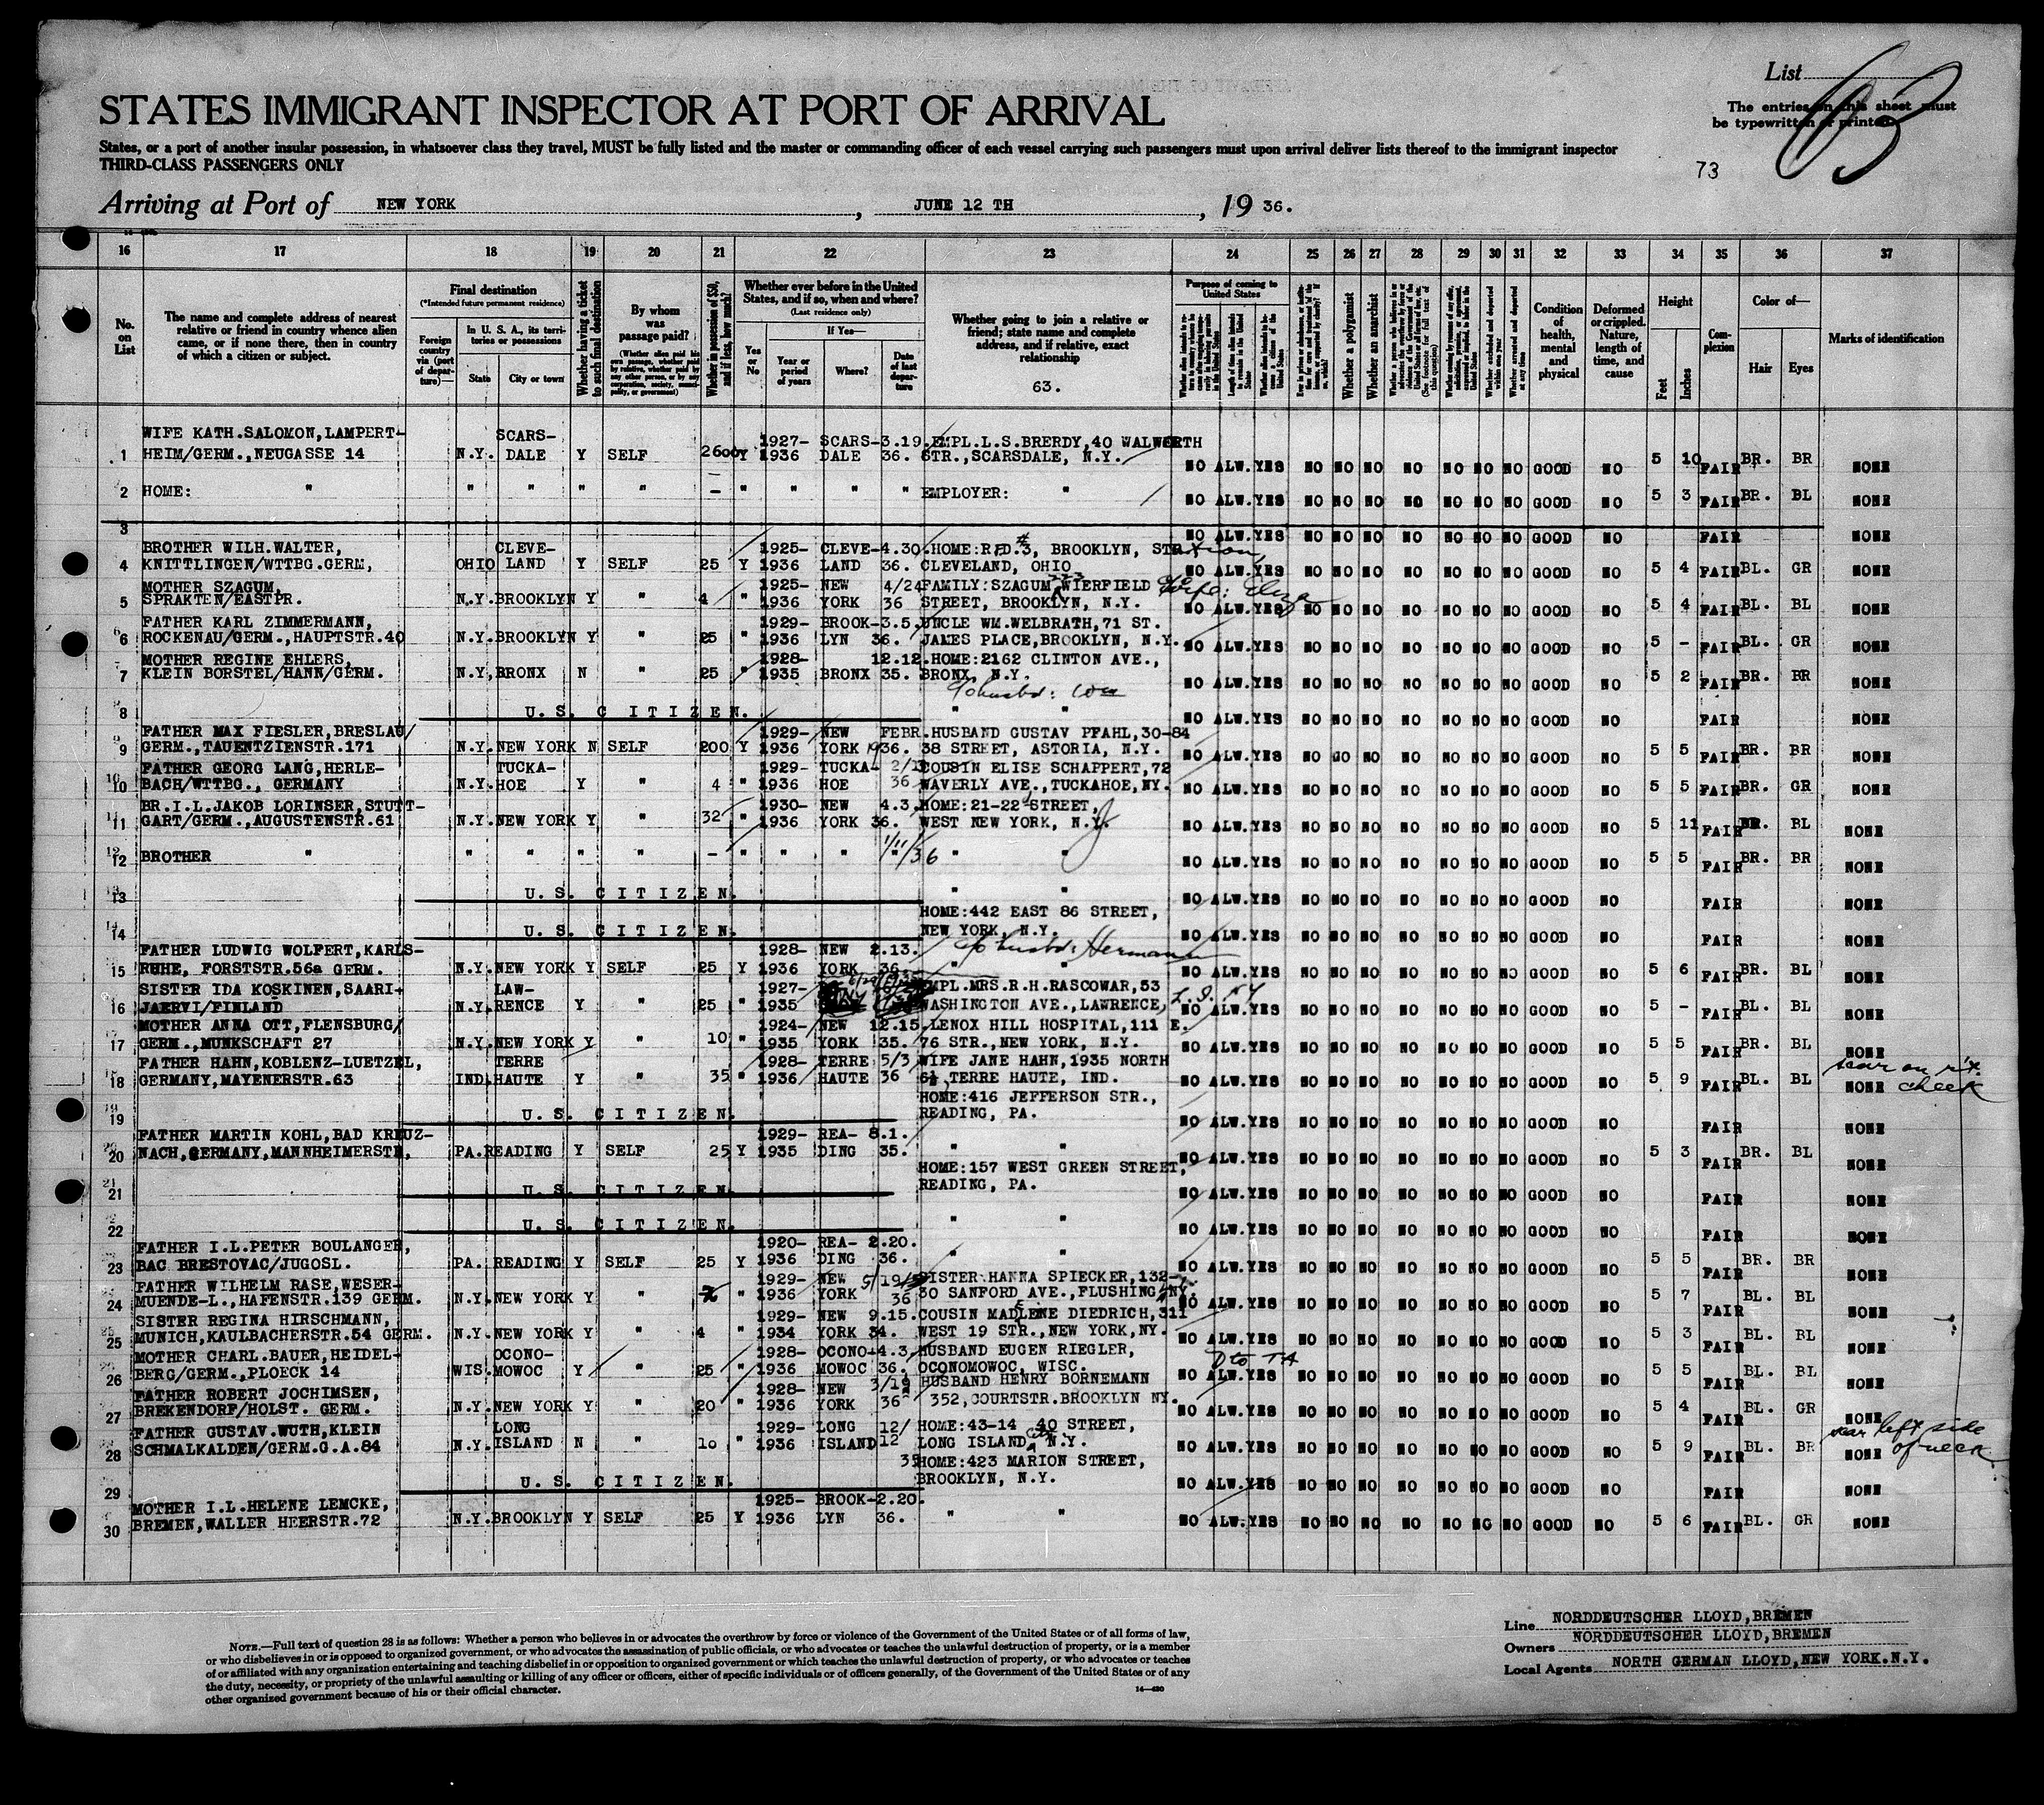 List
63
The entries on this sheet must
be typewritten or printed.
STATES IMMIGRANT INSPECTOR AT PORT OF ARRIVAL
States, or a port of another insular possession, in whatsoever class they travel, MUST be fully listed and the master or commanding officer of each vessel carrying such passengers must upon arrival deliver lists thereof to the immigrant inspector
THIRD-CLASS PASSENGERS ONLY
73
Arriving at Port of NEW YORK, JUNE 12 TH, 19 36.
16 17 18 19 20 21 22 23 24 25 26 27 28 29 30 31 32 33 34 35 36 37
No. on List
The name and complete address of nearest relative or friend in country whence alien came, or if none there, then in country of which a citizen or subject.
Final destination
(*Intended future permanent residence)
Foreign country via (port of departure)—
In U. S. A., its territories or possessions
State
City or town
Whether having a ticket to such final destination
By whom was passage paid?
Whether in possession of $50, and if less, how much?
Whether ever before in the United States, and if so, when and where?
(Last residence only)
Yes or No
If Yes—
Year or period of years
Where?
Date of last departure
Whether going to join a relative or friend; state name and complete address, and if relative, exact relationship
63.
Purpose of coming to United States
Whether a polygamist
Whether an anarchist
Condition of health, mental and physical
Deformed or crippled. Nature, length of time, and cause
Height
Feet
Inches
Complexion
Color of—
Hair
Eyes
Marks of identification
WIFE KATH.SALOMON,LAMPERT- SCARS- 1927- SCARS- 3.19. EMPL.L.S.BRERDY,40 WALWORTH
1 HEIM/GERM.,NEUGASSE 14 N.Y. DALE Y SELF 2600 Y 1936 DALE 36. STR.,SCARSDALE, N.Y. NO ALW. YES NO NO NO NO NO NO NO GOOD NO 5 10 FAIR BR. BR NONE
2 HOME: " " " " " - " " " " EMPLOYER: " NO ALW. YES NO NO NO NO NO NO NO GOOD NO 5 3 FAIR BR. BL NONE
3 NO ALW. YES NO NO NO NO NO NO NO GOOD NO FAIR NONE
BROTHER WILH.WALTER, CLEVE- 1925- CLEVE- 4.30. HOME:R.FD.#3, BROOKLYN, STR Station,
4 KNITTLINGEN/WTTBG.GERM, OHIO LAND Y SELF 25 Y 1936 LAND 36. CLEVELAND, OHIO NO ALW. YES NO NO NO NO NO NO NO GOOD NO 5 4 FAIR BL. GR NONE
MOTHER SZAGUM, 1925- NEW 4/24 FAMILY:SZAGUM WIERFIELD c/o Wife: Eliza
5 SPRAKTEN/EASTPR. N.Y. BROOKLYN Y " 4 " 1936 YORK 36 STREET, BROOKLYN, N.Y. NO ALW. YES NO NO NO NO NO NO NO GOOD NO 5 4 FAIR BL. BL NONE
FATHER KARL ZIMMERMANN, 1929- BROOK- 3.5. UNCLE WM.WELBRATH,71 ST.
6 ROCKENAU/GERM.,HAUPTSTR.40 N.Y. BROOKLYN Y " 25 " 1936 LYN 36. JAMES PLACE,BROOKLYN, N.Y. NO ALW. YES NO NO NO NO NO NO NO GOOD NO 5 - FAIR BL. GR NONE
MOTHER REGINE EHLERS, 1928- 12.12. HOME:2162 CLINTON AVE.,
7 KLEIN BORSTEL/HANN/GERM. N.Y. BRONX N " 25 " 1935 BRONX 35. BRONX, N.Y. NO ALW. YES NO NO NO NO NO NO NO GOOD NO 5 2 FAIR BR. BR NONE
c/o husbd: Wm
8 U.S. CITIZEN. " " NO ALW. YES NO NO NO NO NO NO NO GOOD NO FAIR NONE
FATHER MAX FIESLER,BRESLAU/ 1929- NEW FEBR. HUSBAND GUSTAV PFAHL,30-84
9 GERM.,TAUENTZIENSTR.171 N.Y. NEW YORK N SELF 200 Y 1936 YORK 1936. 38 STREET, ASTORIA, N.Y. NO ALW. YES NO GO NO NO NO NO NO GOOD NO 5 5 FAIR BR. BR NONE
FATHER GEORG LANG,HERLE- TUCKA- 1929- TUCKA- COUSIN ELISE SCHAPPERT,72
10 BACH/WTTBG., GERMANY N.Y. HOE Y " 4 " 1936 HOE 36 WAVERLY AVE.,TUCKAHOE,NY. NO ALW. YES NO NO NO NO NO NO NO GOOD NO 5 5 FAIR BR. GR NONE
BR.I.L.JAKOB LORINSER,STUTT- 1930- NEW 4.3. HOME:21-22 STREET,
11 GART/GERM.,AUGUSTENSTR.61 N.Y. NEW YORK Y " 32 " 1936 YORK 36. WEST NEW YORK, N.Y. J NO ALW. YES NO NO NO NO NO NO NO GOOD NO 5 11 FAIR BR. BL NONE
12 BROTHER " " " " " - " " " 1/11/36 " " NO ALW. YES NO NO NO NO NO NO NO GOOD NO 5 5 FAIR BR. BR NONE
13 U.S. CITIZEN. " " NO ALW. YES NO NO NO NO NO NO NO GOOD NO FAIR NONE
HOME:442 EAST 86 STREET,
14 U.S. CITIZEN. NEW YORK, N.Y. NO ALW. YES NO NO NO NO NO NO NO GOOD NO FAIR NONE
FATHER LUDWIG WOLFERT,KARLS- 1928- NEW 2.13. c/o husbd: Hermann
15 RUHE, FORSTSTR.56a GERM. N.Y. NEW YORK Y SELF 25 Y 1936 YORK 36. " NO ALW. YES NO NO NO NO NO NO NO GOOD NO 5 6 FAIR BR. BL NONE
SISTER IDA KOSKINEN,SAARI- LAW- 1927- EMPL.MRS.R.H.RASCOWAR,53
16 JAERVI/FINLAND N.Y. RENCE Y " 25 " 1935 WASHINGTON AVE.,LAWRENCE, L.I. NY NO ALW. YES NO NO NO NO NO NO NO GOOD NO 5 - FAIR BL. BL NONE
MOTHER ANNA OTT,FLENSBURG/ 1924- NEW 12.15. LENOX HILL HOSPITAL,111 E.
17 GERM.,MUNKSCHAFT 27 N.Y. NEW YORK Y " 10 " 1935 YORK 35. 76 STR.,NEW YORK, N.Y. NO ALW. YES NO NO NO NO NO NO NO GOOD NO 5 5 FAIR BR. BL NONE
FATHER HAHN,KOBLENZ-LUETZEL, TERRE 1928- TERRE 5/3 WIFE JANE HAHN,1935 NORTH scar on r't.
18 GERMANY,MAYENERSTR.63 IND. HAUTE Y " 35 " 1936 HAUTE 36 6½, TERRE HAUTE, IND. NO ALW. YES NO NO NO NO NO NO NO GOOD NO 5 9 FAIR BL. BL NONE cheek
HOME:416 JEFFERSON STR.,
19 U.S. CITIZEN. READING, PA. NO ALW. YES NO NO NO NO NO NO NO GOOD NO FAIR NONE
FATHER MARTIN KOHL,BAD KREUZ- 1929- REA- 8.1.
20 NACH,GERMANY,MANNHEIMERSTR, PA. READING Y SELF 25 Y 1935 DING 35. " " NO ALW. YES NO NO NO NO NO NO NO GOOD NO 5 3 FAIR BR. BL NONE
HOME:157 WEST GREEN STREET,
21 U.S. CITIZEN. READING, PA. NO ALW. YES NO NO NO NO NO NO NO GOOD NO FAIR NONE
22 U.S. CITIZEN. " " NO ALW. YES NO NO NO NO NO NO NO GOOD NO FAIR NONE
FATHER I.L.PETER BOULANGER, 1920- REA- 2.20.
23 BAC BRESTOVAC/JUGOSL. PA. READING Y SELF 25 Y 1936 DING 36. " " NO ALW. YES NO NO NO NO NO NO NO GOOD NO 5 5 FAIR BR. BR NONE
FATHER WILHELM RASE,WESER- 1929- NEW 5/19 SISTER HANNA SPIECKER,132-
24 MUENDE-L.,HAFENSTR.139 GERM. N.Y. NEW YORK Y " " 1936 YORK 36 30 SANFORD AVE.,FLUSHING NY. NO ALW. YES NO NO NO NO NO NO NO GOOD NO 5 7 FAIR BL. BL NONE
SISTER REGINA HIRSCHMANN, 1929- NEW 9.15. COUSIN MADLENE DIEDRICH,311
25 MUNICH,KAULBACHERSTR.54 GERM. N.Y. NEW YORK Y " 4 " 1934 YORK 34. WEST 19 STR.,NEW YORK,NY. NO ALW. YES NO NO NO NO NO NO NO GOOD NO 5 3 FAIR BL. BL NONE
MOTHER CHARL.BAUER,HEIDEL- OCONO- 1928- OCONO- 4.3. HUSBAND EUGEN RIEGLER, D to TA
26 BERG/GERM.,PLOECK 14 WIS. MOWOC Y " 25 " 1936 MOWOC 36. OCONOMOWOC, WISC. NO ALW. YES NO NO NO NO NO NO NO GOOD NO 5 5 FAIR BL. BL NONE
FATHER ROBERT JOCHIMSEN, 1928- NEW 3/19 HUSBAND HENRY BORNEMANN
27 BREKENDORF/HOLST. GERM. N.Y. NEW YORK Y " 20 " 1936 YORK 36 352,COURTSTR.BROOKLYN NY. NO ALW. YES NO NO NO NO NO NO NO GOOD NO 5 4 FAIR BL. GR NONE
FATHER GUSTAV.WUTH,KLEIN LONG 1929- LONG 12/ HOME:43-14 40 STREET, scar left side
28 SCHMALKALDEN/GERM.G.A.84 N.Y. ISLAND N " 10 " 1936 ISLAND 12 LONG ISLAND City N.Y. NO ALW. YES NO NO NO NO NO NO NO GOOD NO 5 9 FAIR BL. BR NONE of neck
35 HOME:423 MARION STREET,
29 U.S. CITIZEN. BROOKLYN, N.Y. NO ALW. YES NO NO NO NO NO NO NO GOOD NO FAIR NONE
MOTHER I.L.HELENE LEMCKE, 1925- BROOK- 2.20.
30 BREMEN,WALLER HEERSTR.72 N.Y. BROOKLYN Y SELF 25 Y 1936 LYN 36. " " NO ALW. YES NO NO NO NO NO NO NO GOOD NO 5 6 FAIR BL. GR NONE
NOTE.—Full text of question 28 is as follows: Whether a person who believes in or advocates the overthrow by force or violence of the Government of the United States or of all forms of law,
or who disbelieves in or is opposed to organized government, or who advocates the assassination of public officials, or who advocates or teaches the unlawful destruction of property, or is a member
of or affiliated with any organization entertaining and teaching disbelief in or opposition to organized government or which teaches the unlawful destruction of property, or who advocates or teaches
the duty, necessity, or propriety of the unlawful assaulting or killing of any officer or officers, either of specific individuals or of officers generally, of the Government of the United States or of any
other organized government because of his or their official character.
14—430
Line NORDDEUTSCHER LLOYD,BREMEN
Owners NORDDEUTSCHER LLOYD,BREMEN
Local Agents NORTH GERMAN LLOYD,NEW YORK.N.Y.